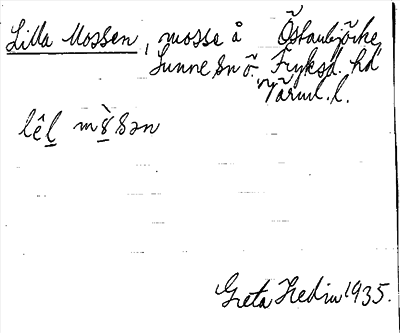 Lilla Mossen, mosse å Östanbjörke
Sunne sn Ö. Fryksd. hd
Värml. l.
lêl mɷ̀sən
Greta Hedin 1935.